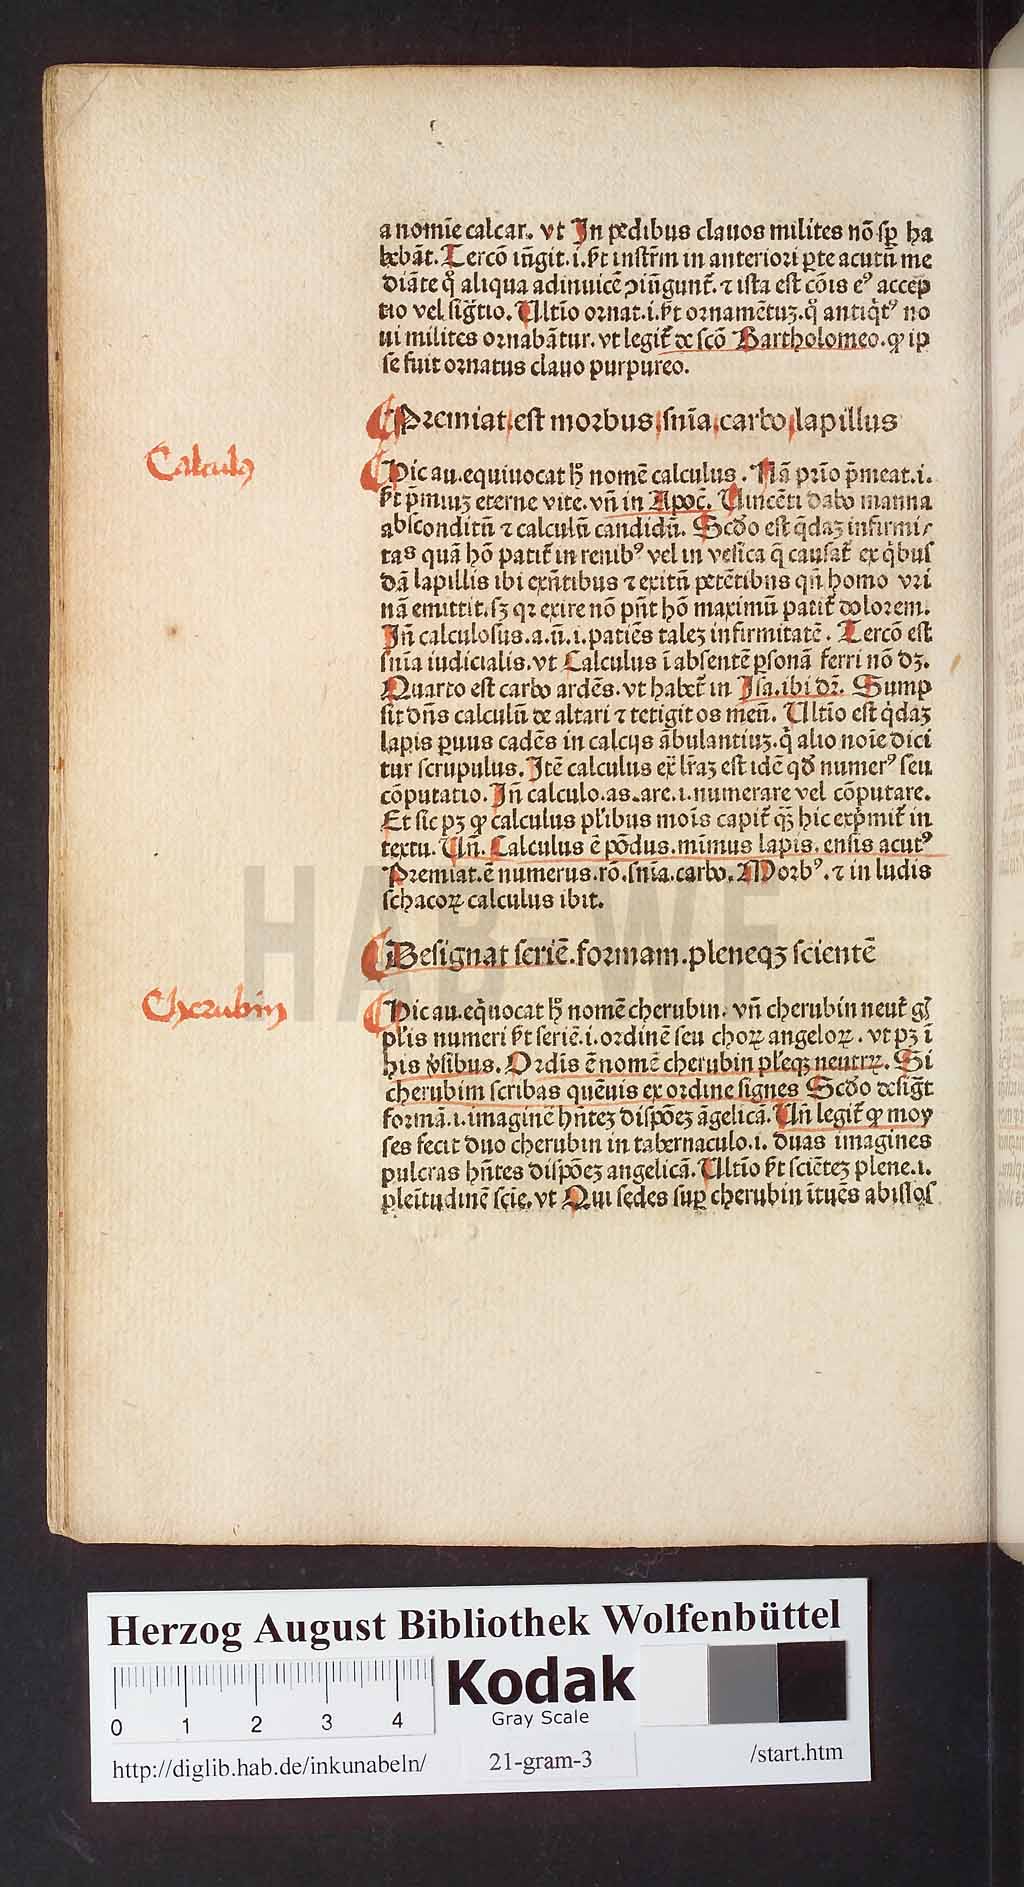 a nomīe calcar. vt In pedibus clauos milites nō sꝑ ha
bebāt. Tercō iñgit .i. ꝼt instr̄m in anteriori ꝑte acutū me
diāte qͦ aliqua adinuicē ꝯiñgunt᷑. ⁊ ista est cōis eꝰ accep
tio vel sig̃tio. Ultīo ornat .i. ꝼt ornamētuꝫ. qͦ antiq̇tꝰ no
ui milites ornabātur. vt legit᷑ de scō Bartholomeo. ꝙ ip
se fuit ornatus clauo purpureo.
Premiat est morbus snīa carbo lapillus
Calculꝰ
Hic au. equiuocat hͦ nomē calculus. Nā prīo p̄meat .i.
ꝼt p̄miuꝫ eterne vite. vñ in Apoc̄. Uincēti dabo manna
absconditū ⁊ calculū candidū. Scdo est q̇daꝫ infirmi
tas quā hō patit᷑ in renibꝰ vel in vesica q̄ causat᷑ ex q̇bus
dā lapillis ibi exñtibus ⁊ exitū petētibus qñ homo vri
nā emittit. sꝫ qꝛ exire nō pñt hō maximū patit᷑ dolorem.
Iñ calculosus .a.ū. i. patiēs taleꝫ infirmitatē. Tercō est
snīa iudicialis. vt Calculus ī absentē ꝑsonā ferri nō dꝫ.
Quarto est carbo ardēs. vt habet᷑ in Isa. ibi dꝛ. Sump
sit dñs calculū de altari ⁊ tetigit os meū. Ultīo est q̇daꝫ
lapis ꝑuus cadēs in calcijs ābulantiuꝫ. q̇ alio noīe dici
tur scrupulus. Itē calculus ẽx lr̃aꝫ est idē qd numerꝰ seu
cōputatio. Iñ calculo .as.are. i. numerare vel cōputare.
Et sic pꝫ ꝙ calculus pl̄ibus moīs capit᷑ qꝫ hic exp̄mit᷑ in
textu. Uñ. Calculus ē pōdus. mīmus lapis. ensis acutꝰ
Premiat. ē numerus. rō. snīa. carbo. Morbꝰ. ⁊ in ludis
schacoꝝ calculus ibit.
Designat seriē. formam. pleneqꝫ scientē
Cherubin
Hic au. eq̇uocat hͦ nomē cherubin. vñ cherubin neut᷑ gͥs
pl̄is numeri ꝼt seriē .i. ordinē seu choꝝ angeloꝝ. vt pꝫ ī
his v̾sibus. Ordīs ē nomē cherubin pl̄eqꝫ neutrꝝ. Si
cherubim scribas quēuis ex ordine signes Scdo desig̃t
formā .i. imaginē hñteꝫ dispōeꝫ āgelicā. Uñ legit᷑ ꝙ moy
ses fecit duo cherubin in tabernaculo .i. duas imagines
pulcras hñtes dispōeꝫ angelicā. Ultīo ꝼt sciēteꝫ plene .i.
pleītudinē scīe. vt Qui sedes suꝑ cherubin ītuēs abissos
HAB-WF
Herzog August Bibliothek Wolfenbüttel
0 1 2 3 4
Kodak
Gray Scale
http://diglib.hab.de/inkunabeln/ 21-gram-3 /start.htm